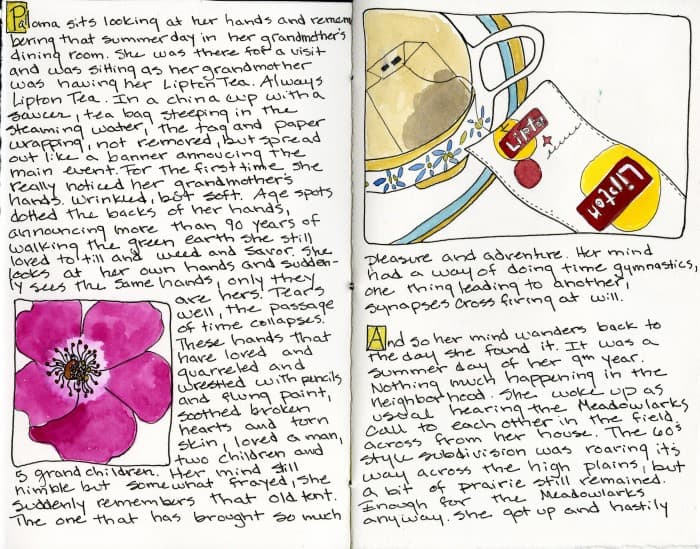 Paloma sits looking at her hands and remem
bering that summer day in her grandmother's
dining room. She was there for a visit
and was sitting as her grandmother
was having her Lipton Tea. Always
Lipton Tea. In a china cup with a
saucer, tea bag steeping in the
steaming water, the tag and paper
wrapping, not removed, but spread
out like a banner annoucing the
main event. For the first time she
really noticed her grandmother's
hands. Wrinkled, but soft. Age spots
dotted the backs of her hands,
announcing more than 90 years of
walking the green earth she still
loved to till and weed and savor. She
looks at her own hands and sudden-
ly sees the same hands, only they
are hers. Tears
well, the passage
of time collapses.
These hands that
have loved and
quarreled and
wrestled with pencils
and flung paint,
soothed broken
hearts and torn
skin, loved a man,
two children and
5 grandchildren. Her mind still
nimble but somewhat frayed, she
suddenly remembers that old tent.
The one that has brought so much
Lipton
Lipton
pleasure and adventure. Her mind
had a way of doing time gymnastics,
one thing leading to another,
synapses cross firing at will.
And so her mind wanders back to
the day she found it. It was a
summer day of her 9th year.
Nothing much happening in the
neighborhood. She woke up as
usual hearing the Meadowlarks
call to each other in the field
across from her house. The 60's
style subdivision was roaring its
way across the high plains, but
a bit of prairie still remained.
Enough for the Meadowlarks
anyway. She got up and hastily